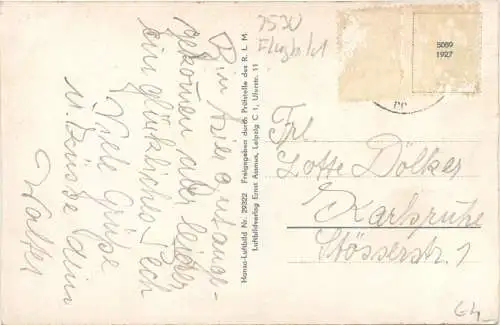 7530
Flugbild
Bin hier gut ange-
kommen aber leider
ein glückliches Pech
Viele Grüße
u. Küsse dein
Walter
Hansa-Luftbild Nr. 29322 Freigegeben durch Prüfstelle des R. L. M.
Luftbildverlag Ernst Assmus, Leipzig C 1, Uferstr. 11
5089
1927
Frl.
Lotte Dölker
Karlsruhe
Stösserstr. 1